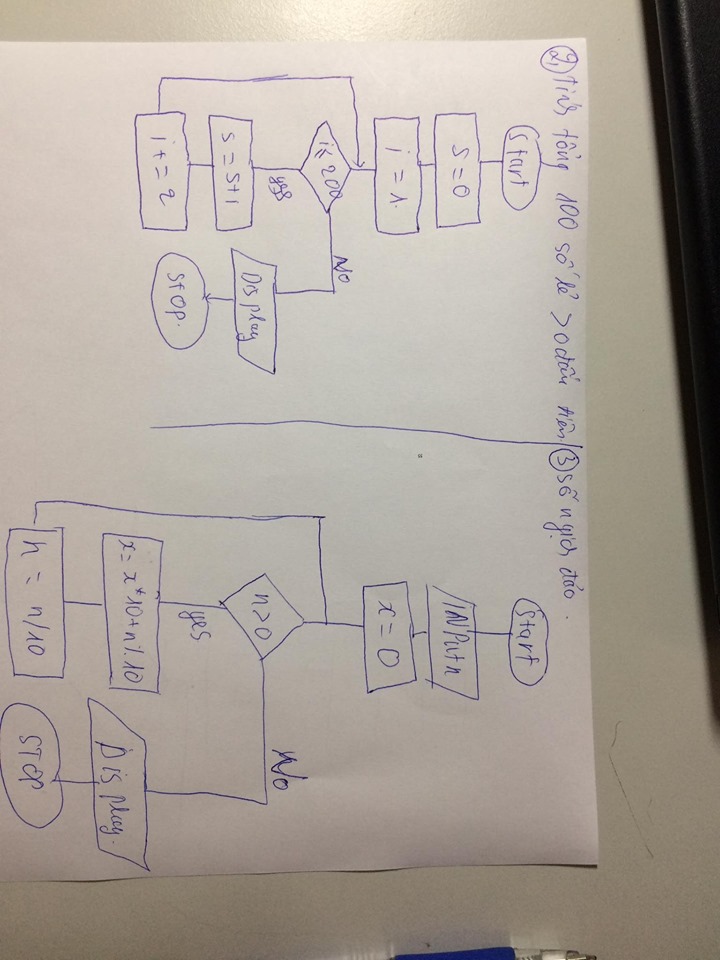 ②, Tính tổng 100 số lẻ >0 đầu tiên
Start
S=0
i=1.
i≤200
yes
No
S=S+1
i+=2
Display
STOP.
③ Số nghịch đảo.
Start
INPut n
x=0
n>0
yes
No
x=x*10+n%10
n=n/10
Display.
STOP